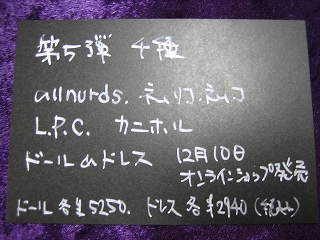 第5弾 4種
allnurds. ネムリネコ. ネムコ
L.P.C. カニホル
ドールのドレス 12月10日
オンラインショップ発売
ドール 各¥5250. ドレス 各¥2940 (税込)